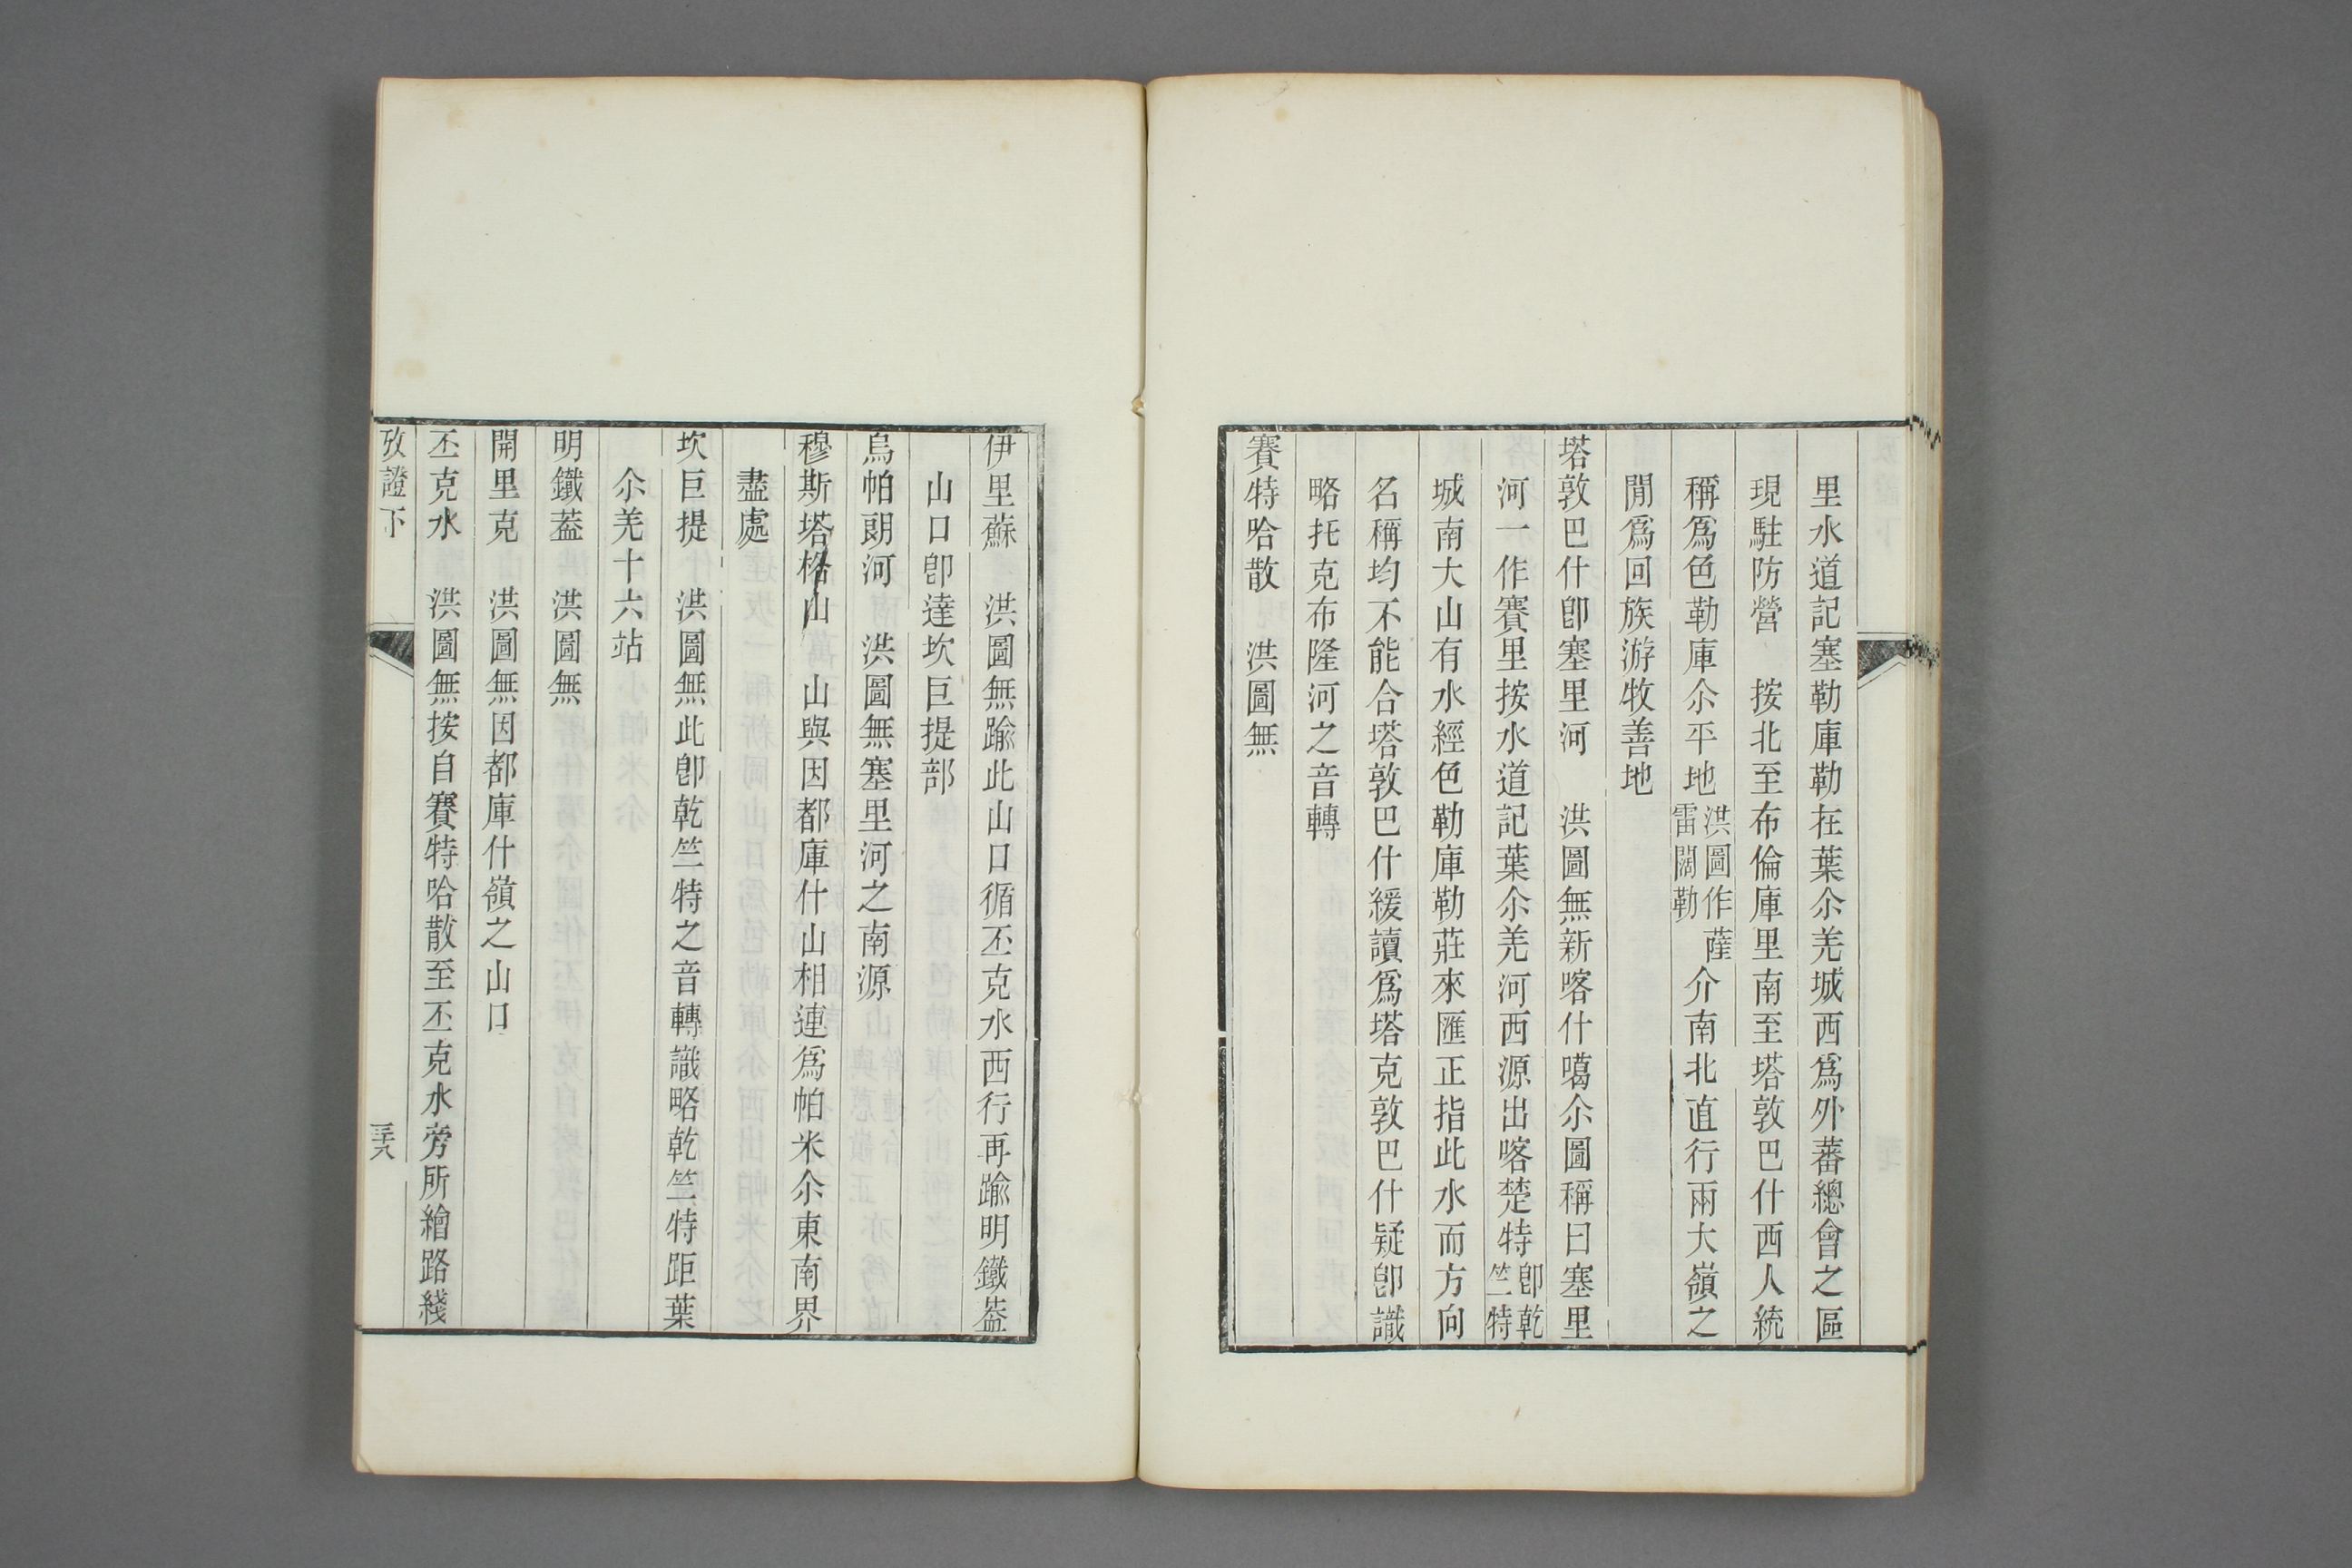 里水道記塞勒庫勒在葉尒羌城西爲外蕃總會之區
現駐防營　按北至布倫庫里南至塔敦巴什西人統
稱爲色勒庫尒平地洪圖作薩雷闊勒介南北直行兩大嶺之
閒爲回族游牧善地
塔敦巴什卽塞里河　洪圖無新喀什噶尒圖稱曰塞里
河一作賽里按水道記葉尒羌河西源出喀楚特卽乾竺特
城南大山有水經色勒庫勒莊來匯正指此水而方向
名稱均不能合塔敦巴什緩讀爲塔克敦巴什疑卽識
略托克布隆河之音轉
賽特哈散　洪圖無
伊里蘇　洪圖無踰此山口循丕克水西行再踰明鐵葢
山口卽達坎巨提部
烏帕朗河　洪圖無塞里河之南源
穆斯塔格山　山與因都庫什山相連爲帕米尒東南界
盡處
坎巨提　洪圖無此卽乾竺特之音轉識略乾竺特距葉
尒羌十六站
明鐵葢　洪圖無
開里克　洪圖無因都庫什嶺之山口
丕克水　洪圖無按自賽特哈散至丕克水旁所繪路綫
攷證下　三十八